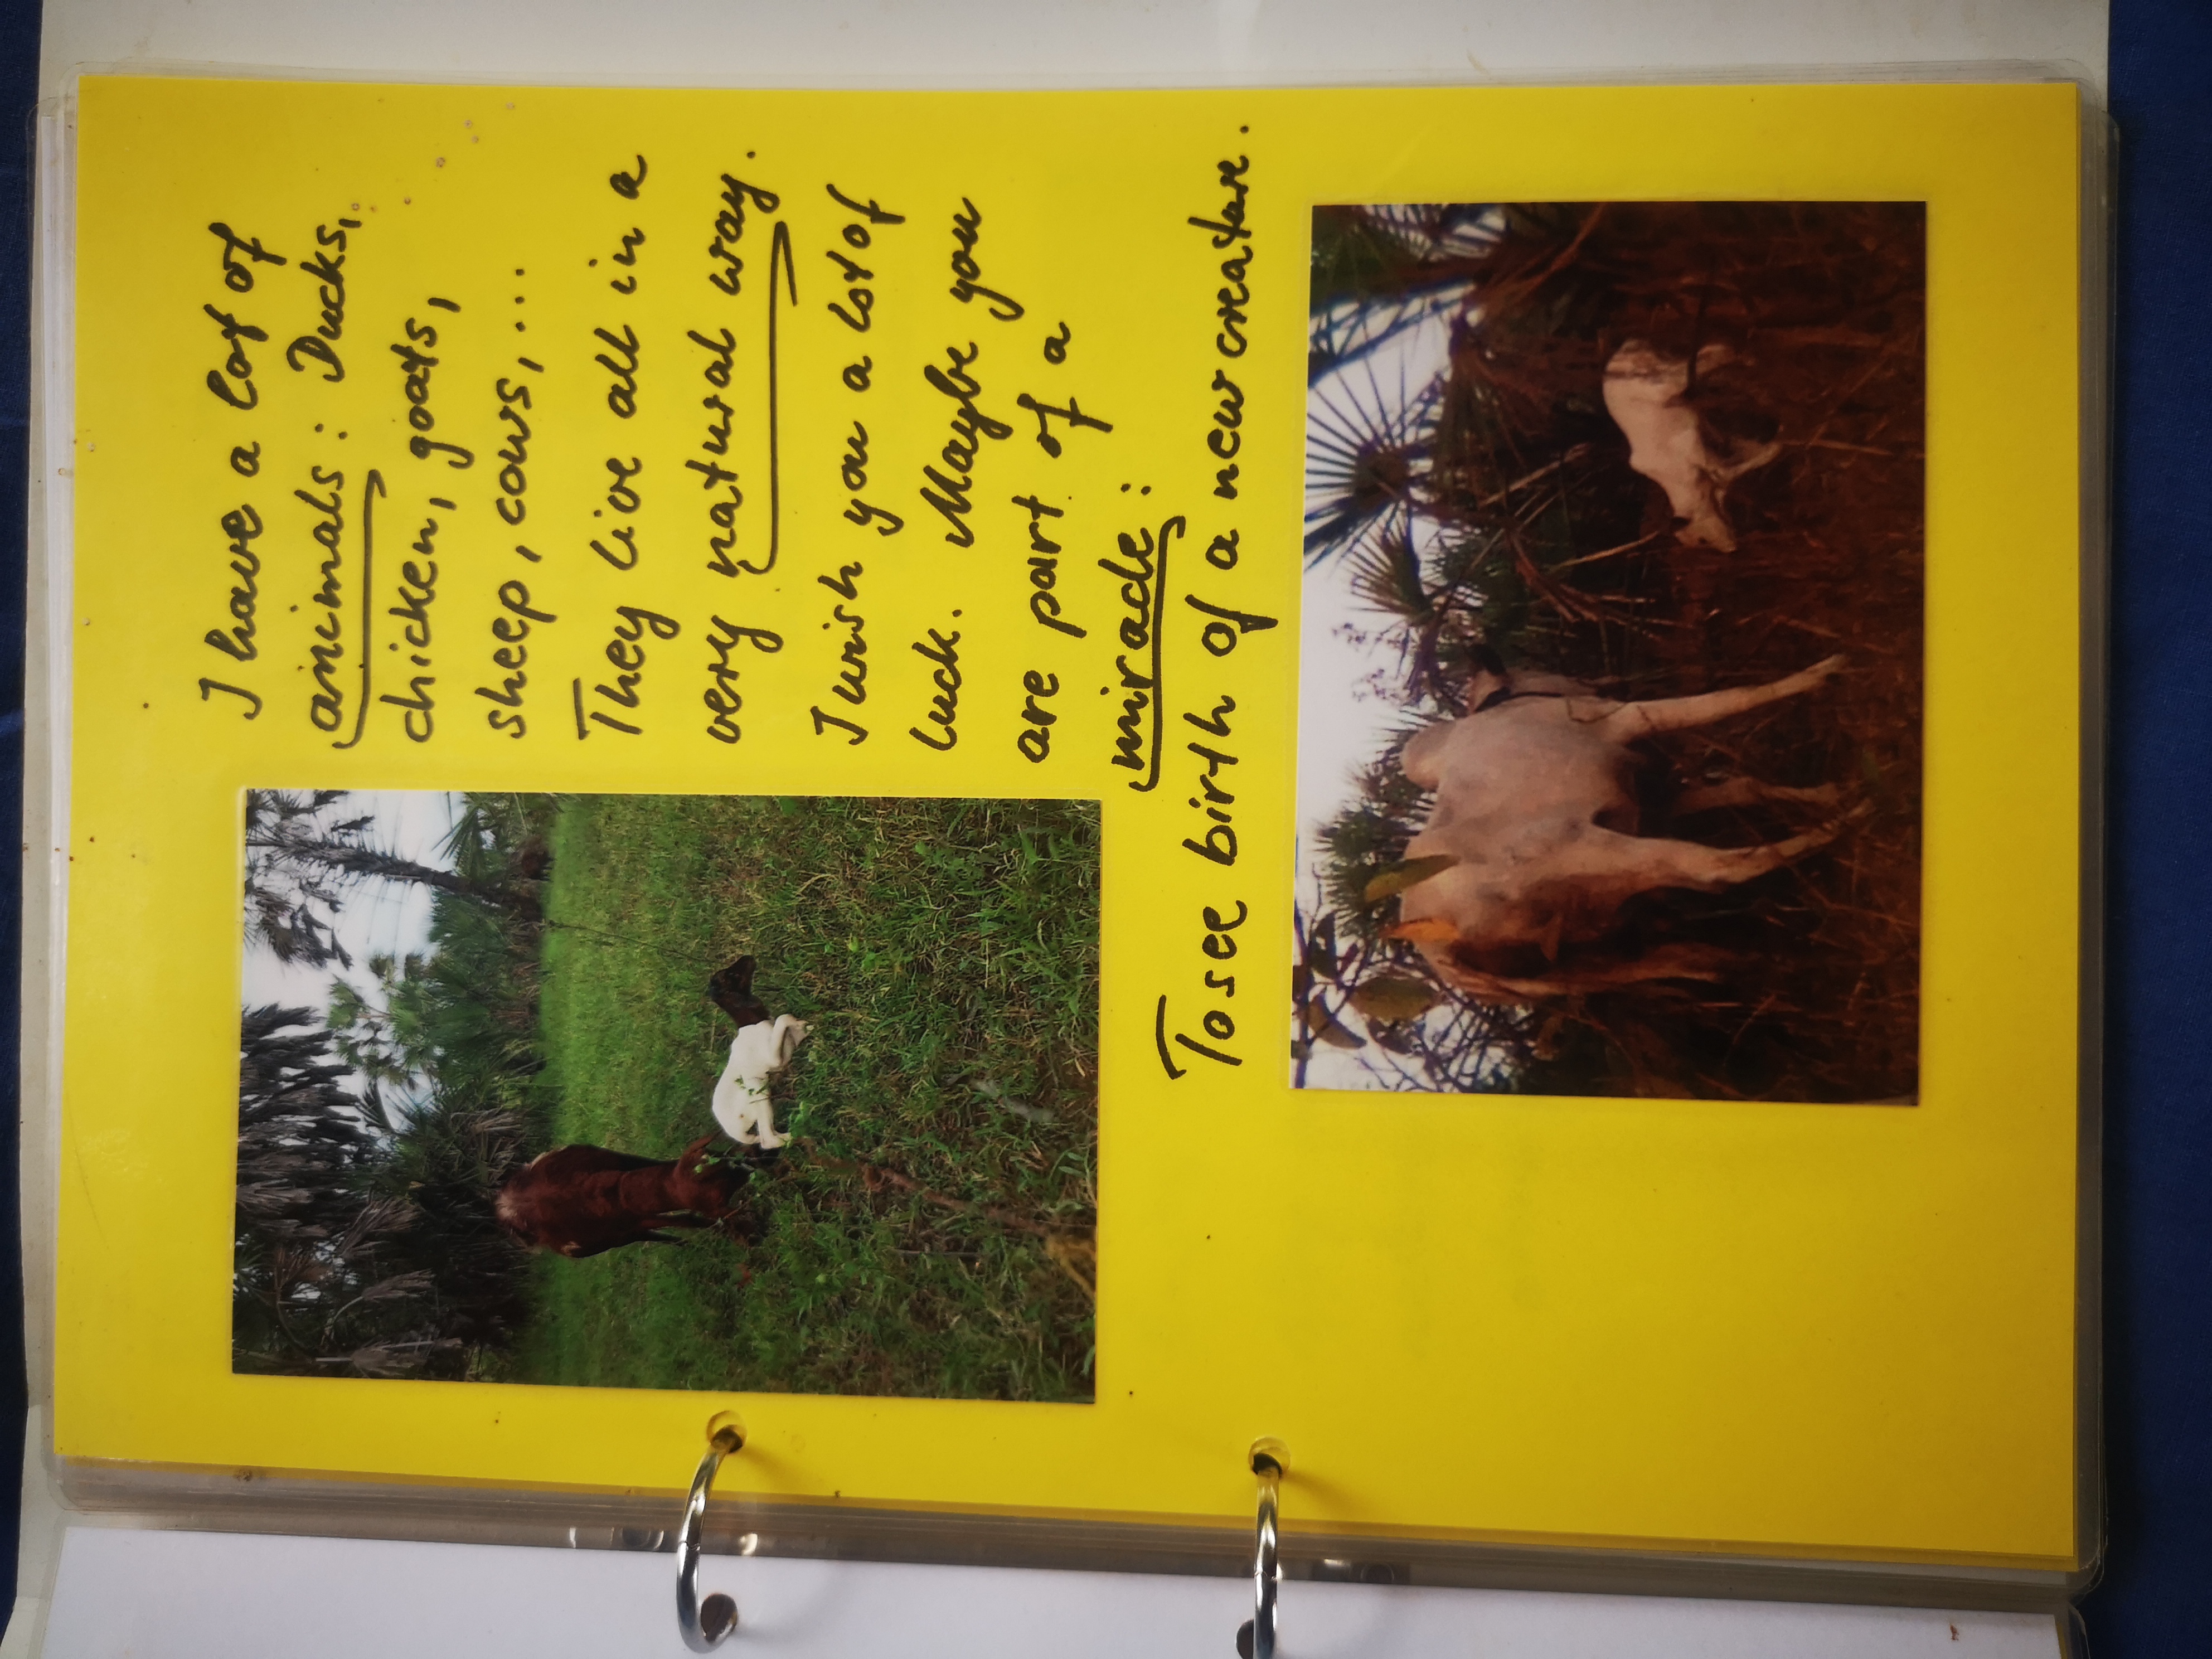 I have a lot of
animals: Ducks,
chicken, goats,
sheep, cows, ...
They live all in a
very natural way.
I wish you a lot of
luck. Maybe you
are part of a
miracle:
To see birth of a new creature.